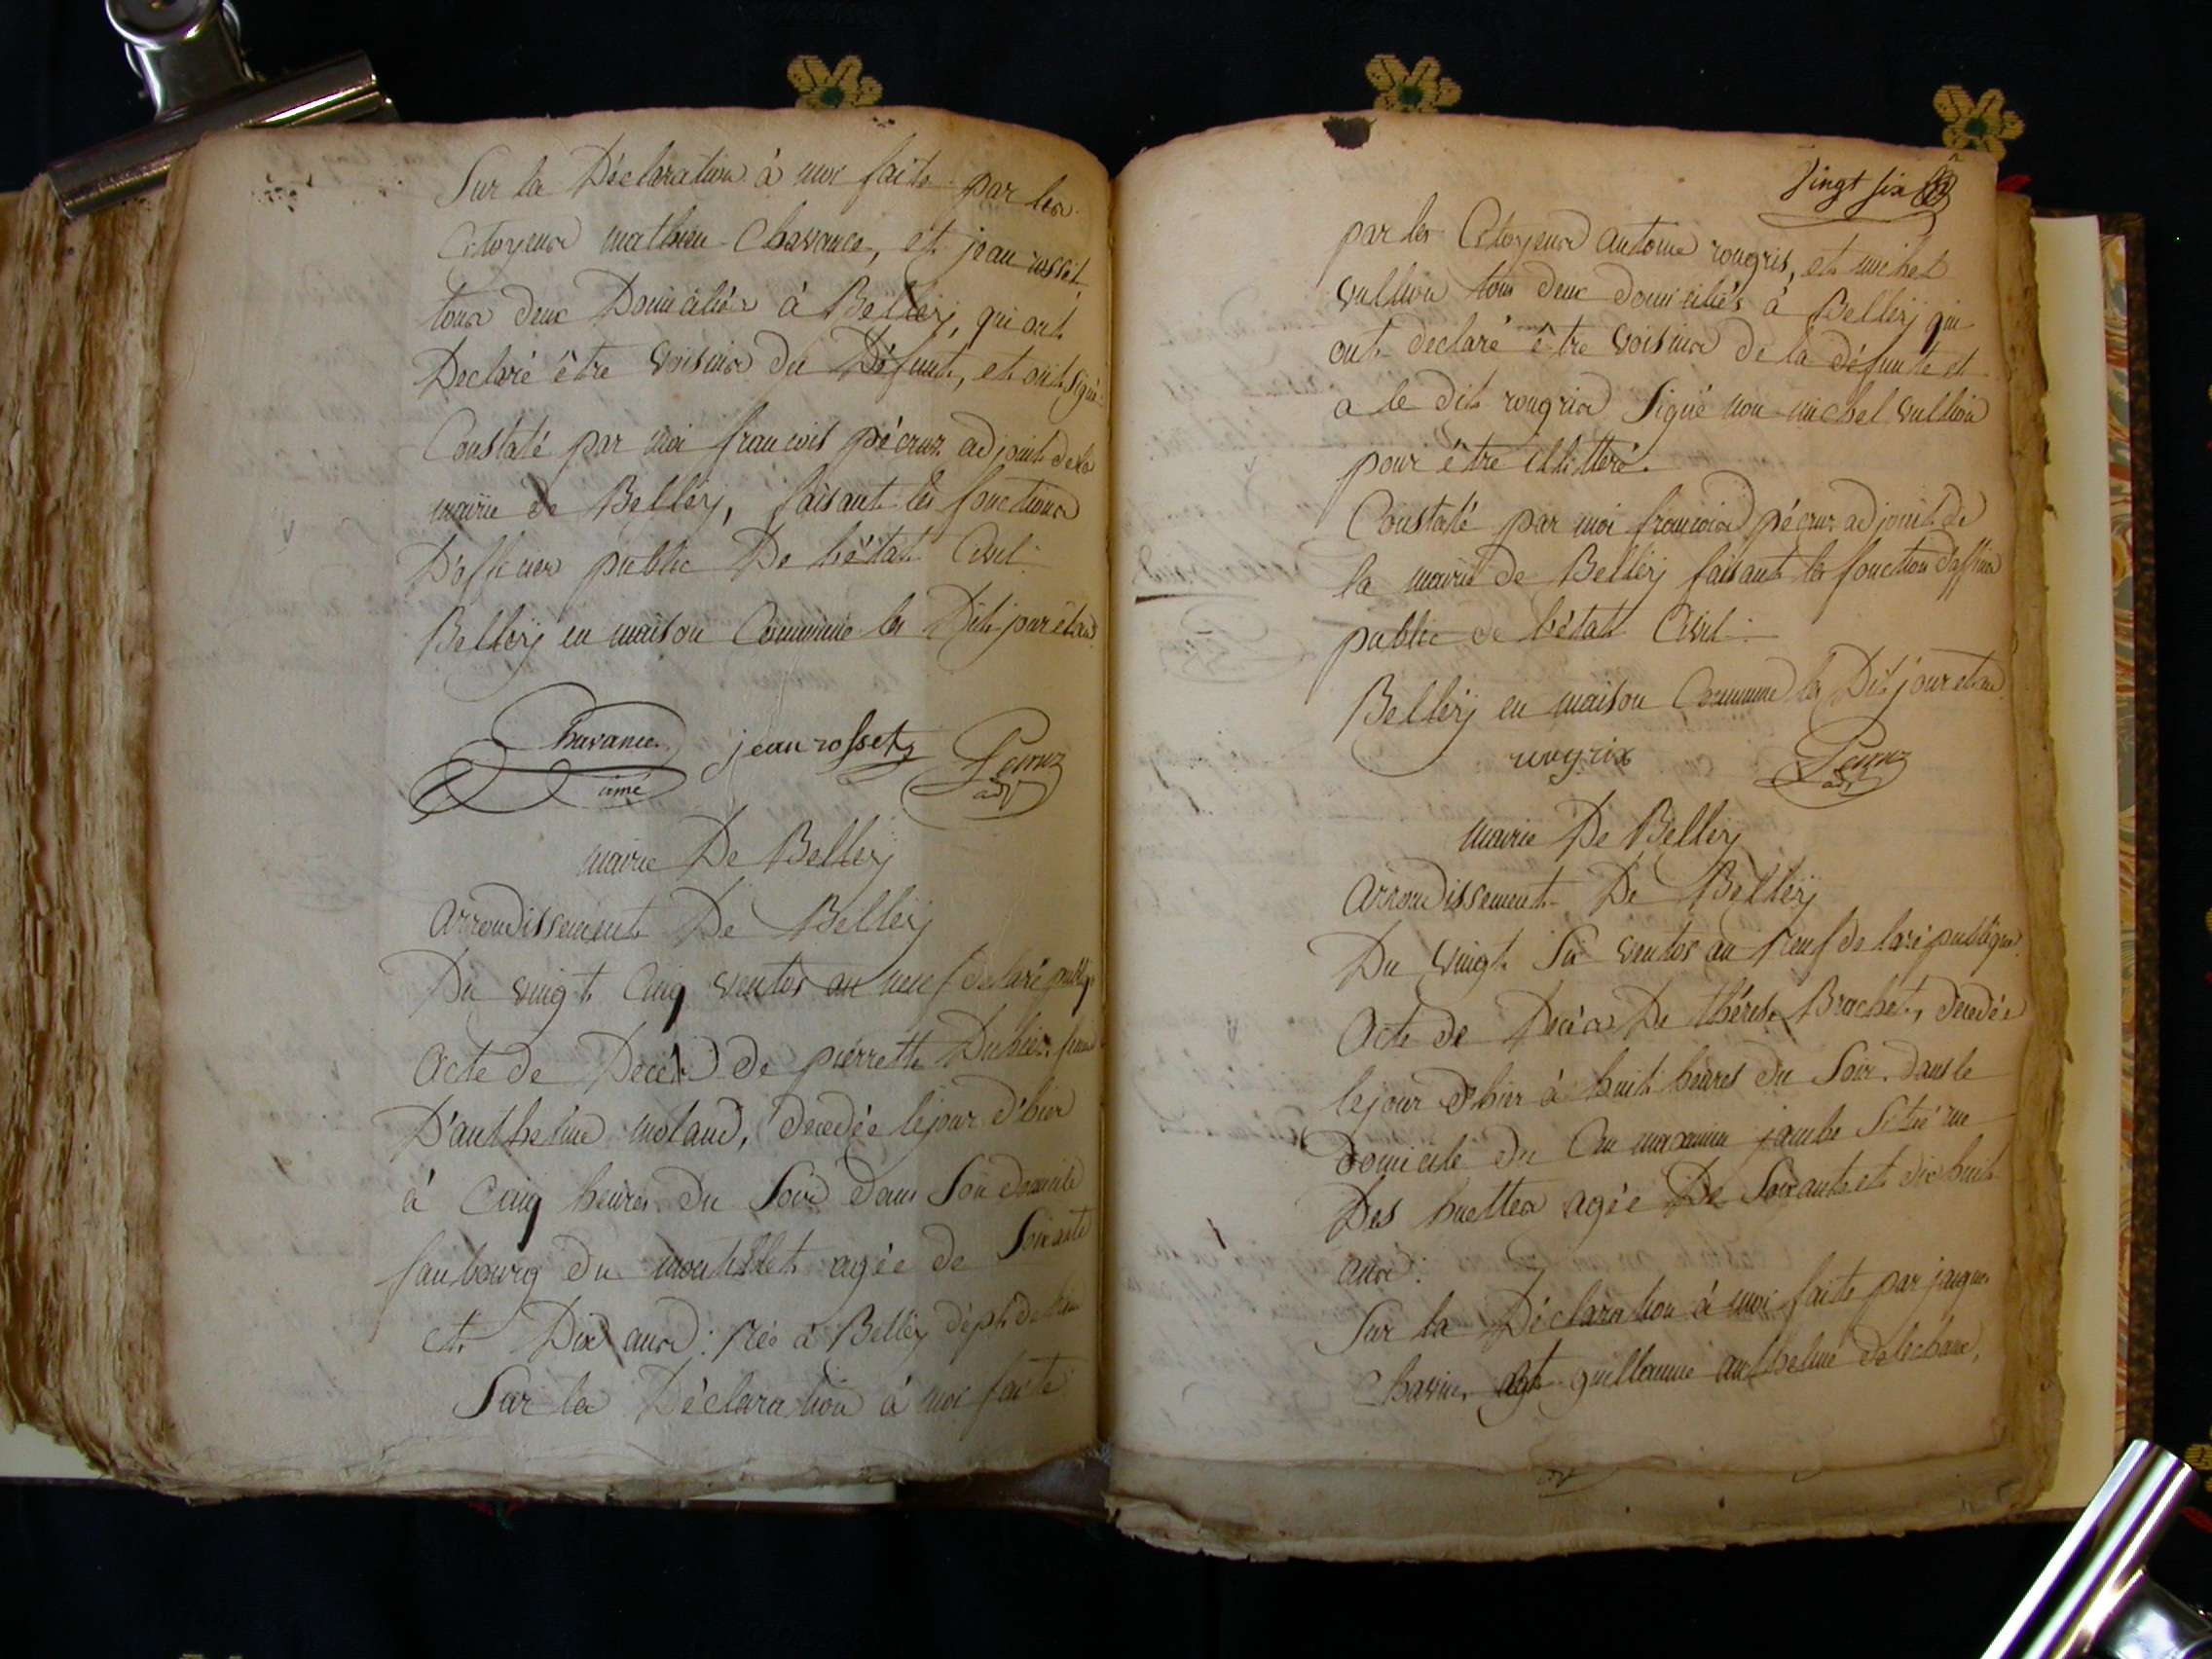 Sur la Déclaration à moi faite par les
Citoyens mathieu Chavance, et jean rosset
tous deux Domiciliés à Belleÿ, qui ont
Declaré être voisins du Défunt, et ont signé
Constaté par moi francois pécruz adjoint de la
mairie de Belleÿ, faisant les fonctions
D'officier public De l'état Civil
Belleÿ en maison Commune les Dits jour et an
Chavance jean rosset Pecruz
ainé adjt
mairie De Belleÿ
arrondissement De Belleÿ
Du vingt Cinq ventos an neuf de la répubq
Acte de Decés de pierrette
D'anthelme molard, decedée le jour d'hier
à Cinq heures du Soir dans Son domicile
faubourg du agée de Soixante
et Dix ans : Née à Belleÿ dépt de
Sur la Déclaration à moi faite
Vingt six
par les Citoyens antoine rougris, et michel
vullion tous deux domiciliés à Belleÿ qui
ont declaré être voisins de la défunte et
a le dit rougris Signé non michel vullion
pour être illitteré.
Constaté par moi francois pécruz adjoint de
la mairie de Belleÿ faisant les fonction d'officier
public de l'état Civil :
Belleÿ en maison Commune les Dit jour et an
rougrix Pecruz
adjt
mairie De Belleÿ
arrondissement De Belleÿ
Du vingt Six ventos an Neuf de la république
Acte de Decés De thérese Brachet, decedée
le jour d'hier à huit heures du Soir dans le
domicile du Cen maximin jambe Sitüé rue
Des huettes agée De Soixante et dix huit
ans :
Sur la Déclaration à moi faite par jaques
Charin, et guillaume anthelme